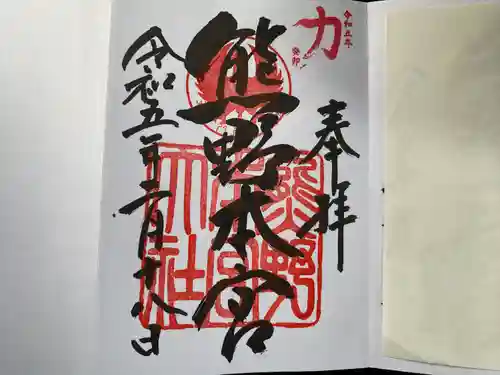 力
令和五年
癸卯
奉拝
熊野本宮
熊野本宮大社
令和五年二月十八日